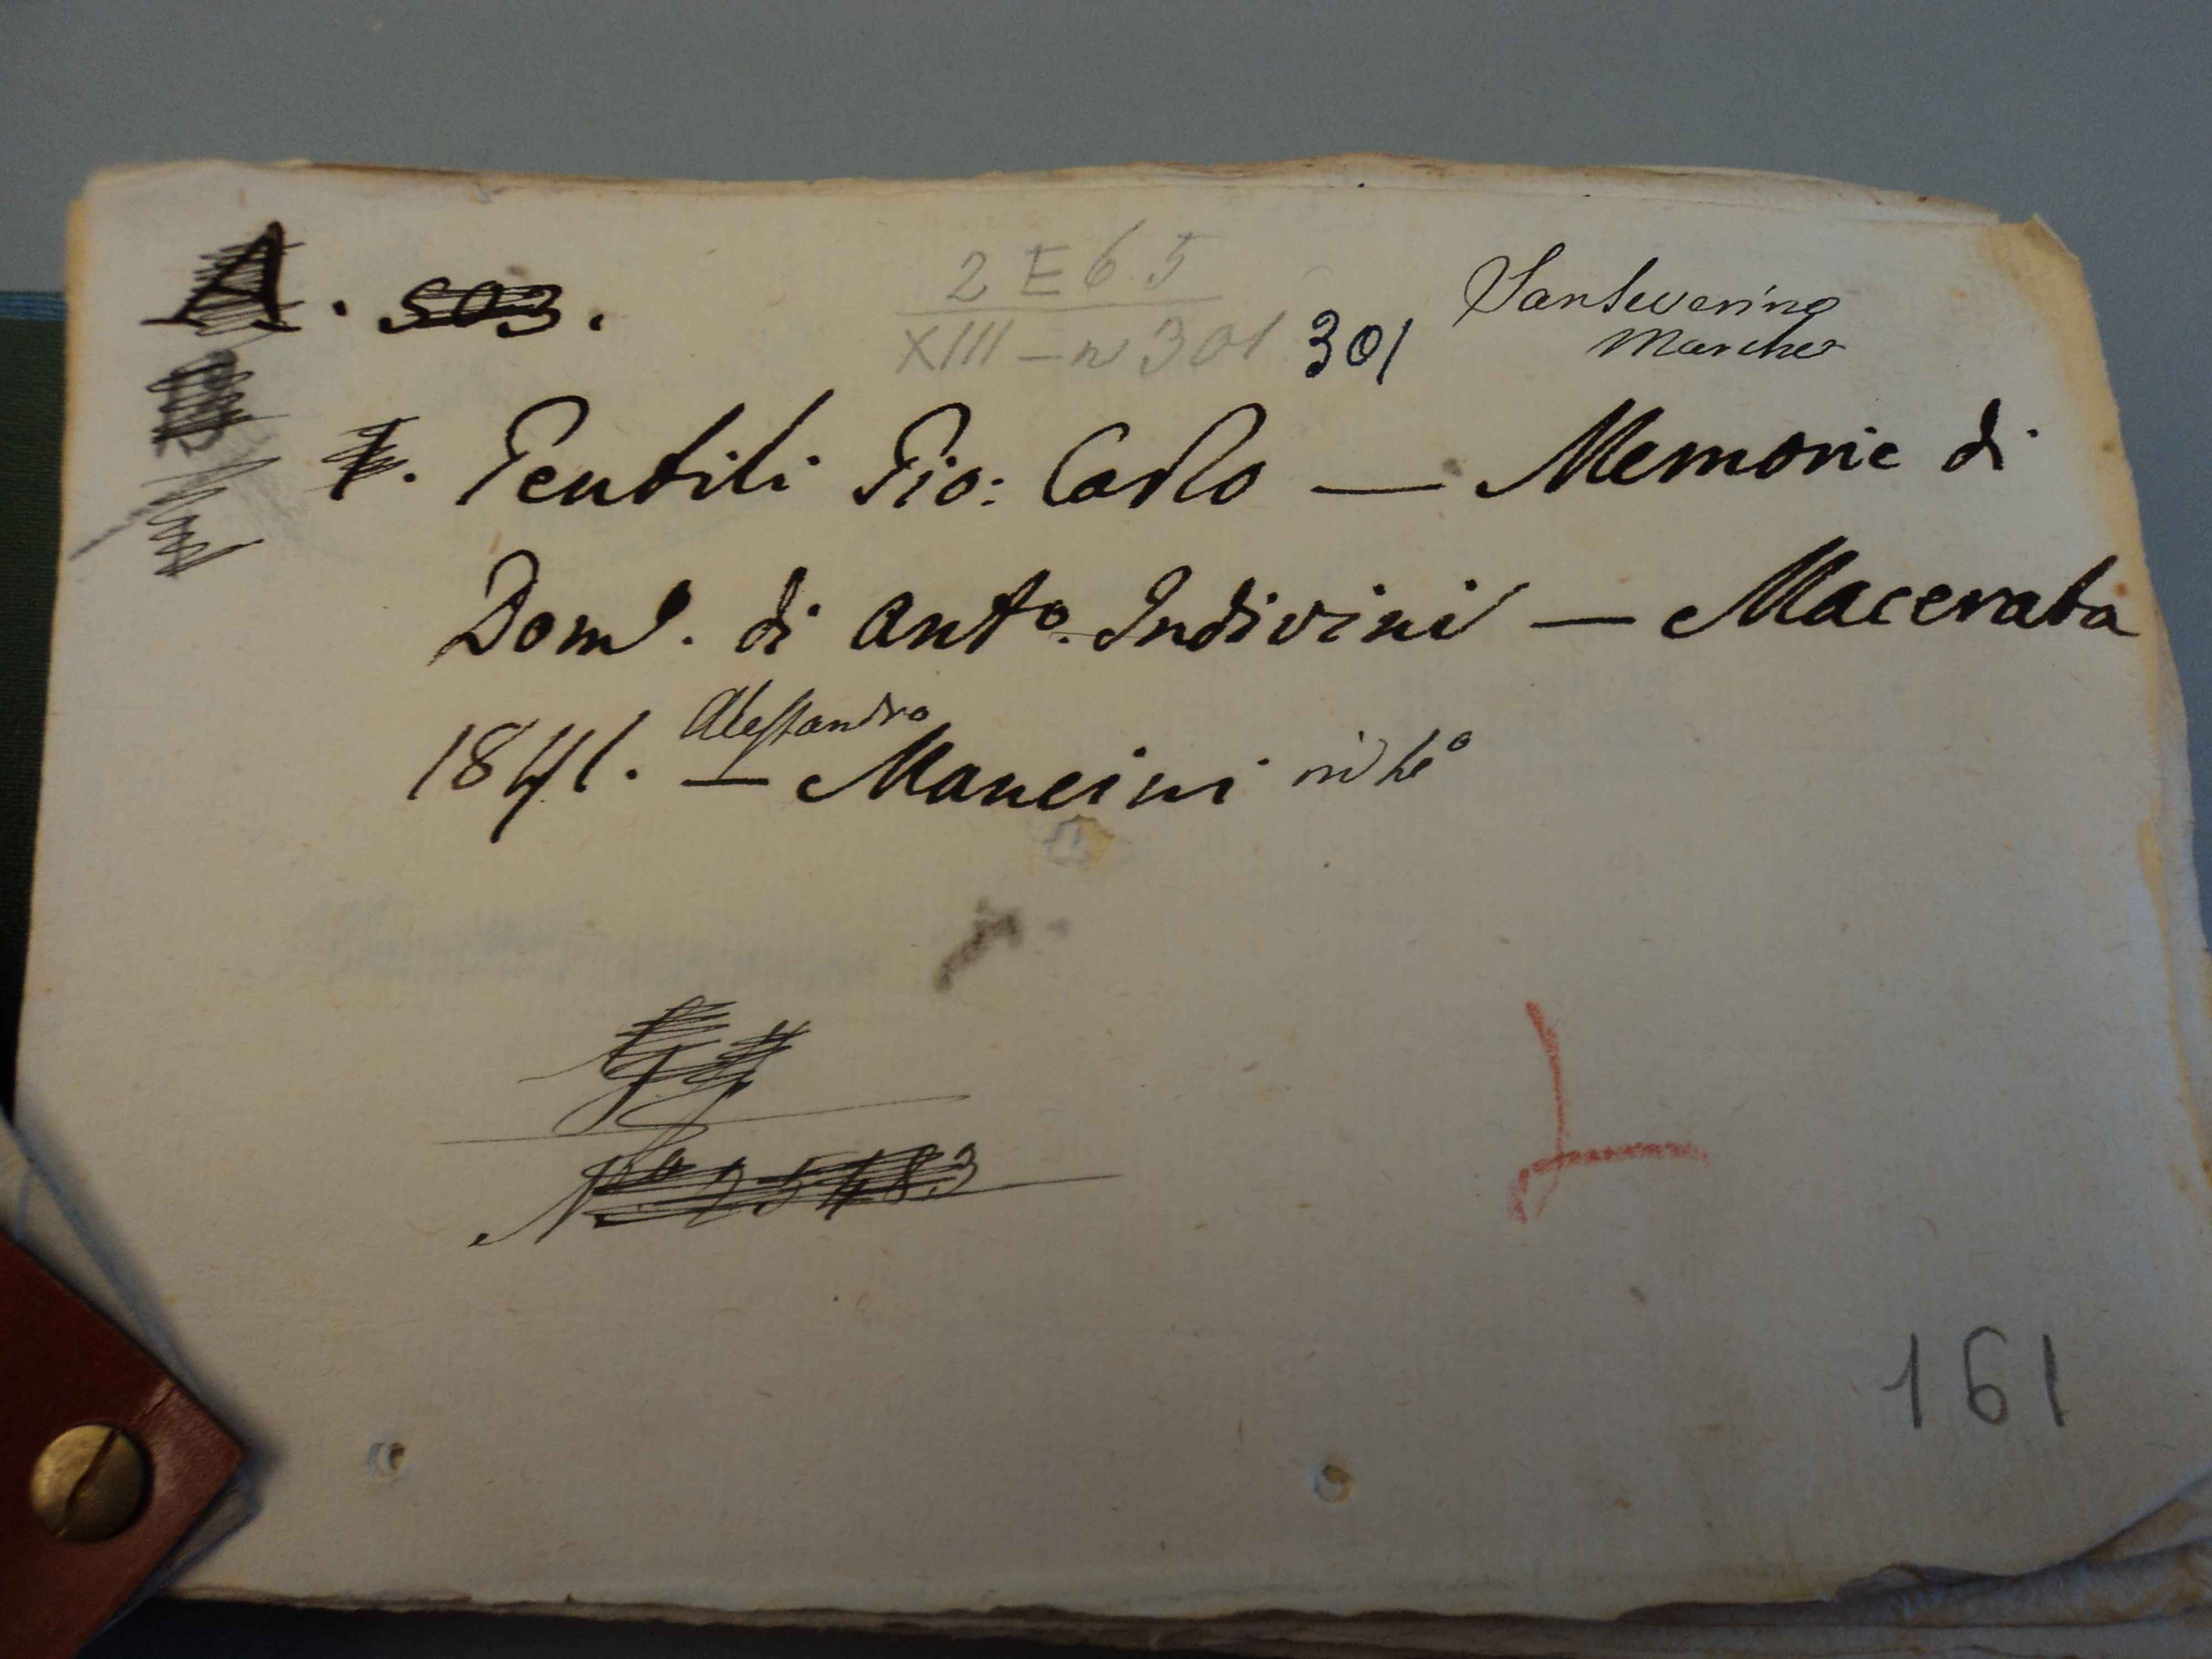 A. 503.
2 E 6 5
XIII - n 301
301
Sanseverino
Marche
Gentili Gio: Carlo — Memorie di
Dom.º di Ant.º Indivini — Macerata
1841. — Alessandro Mancini in 16º
Nº 25483
161